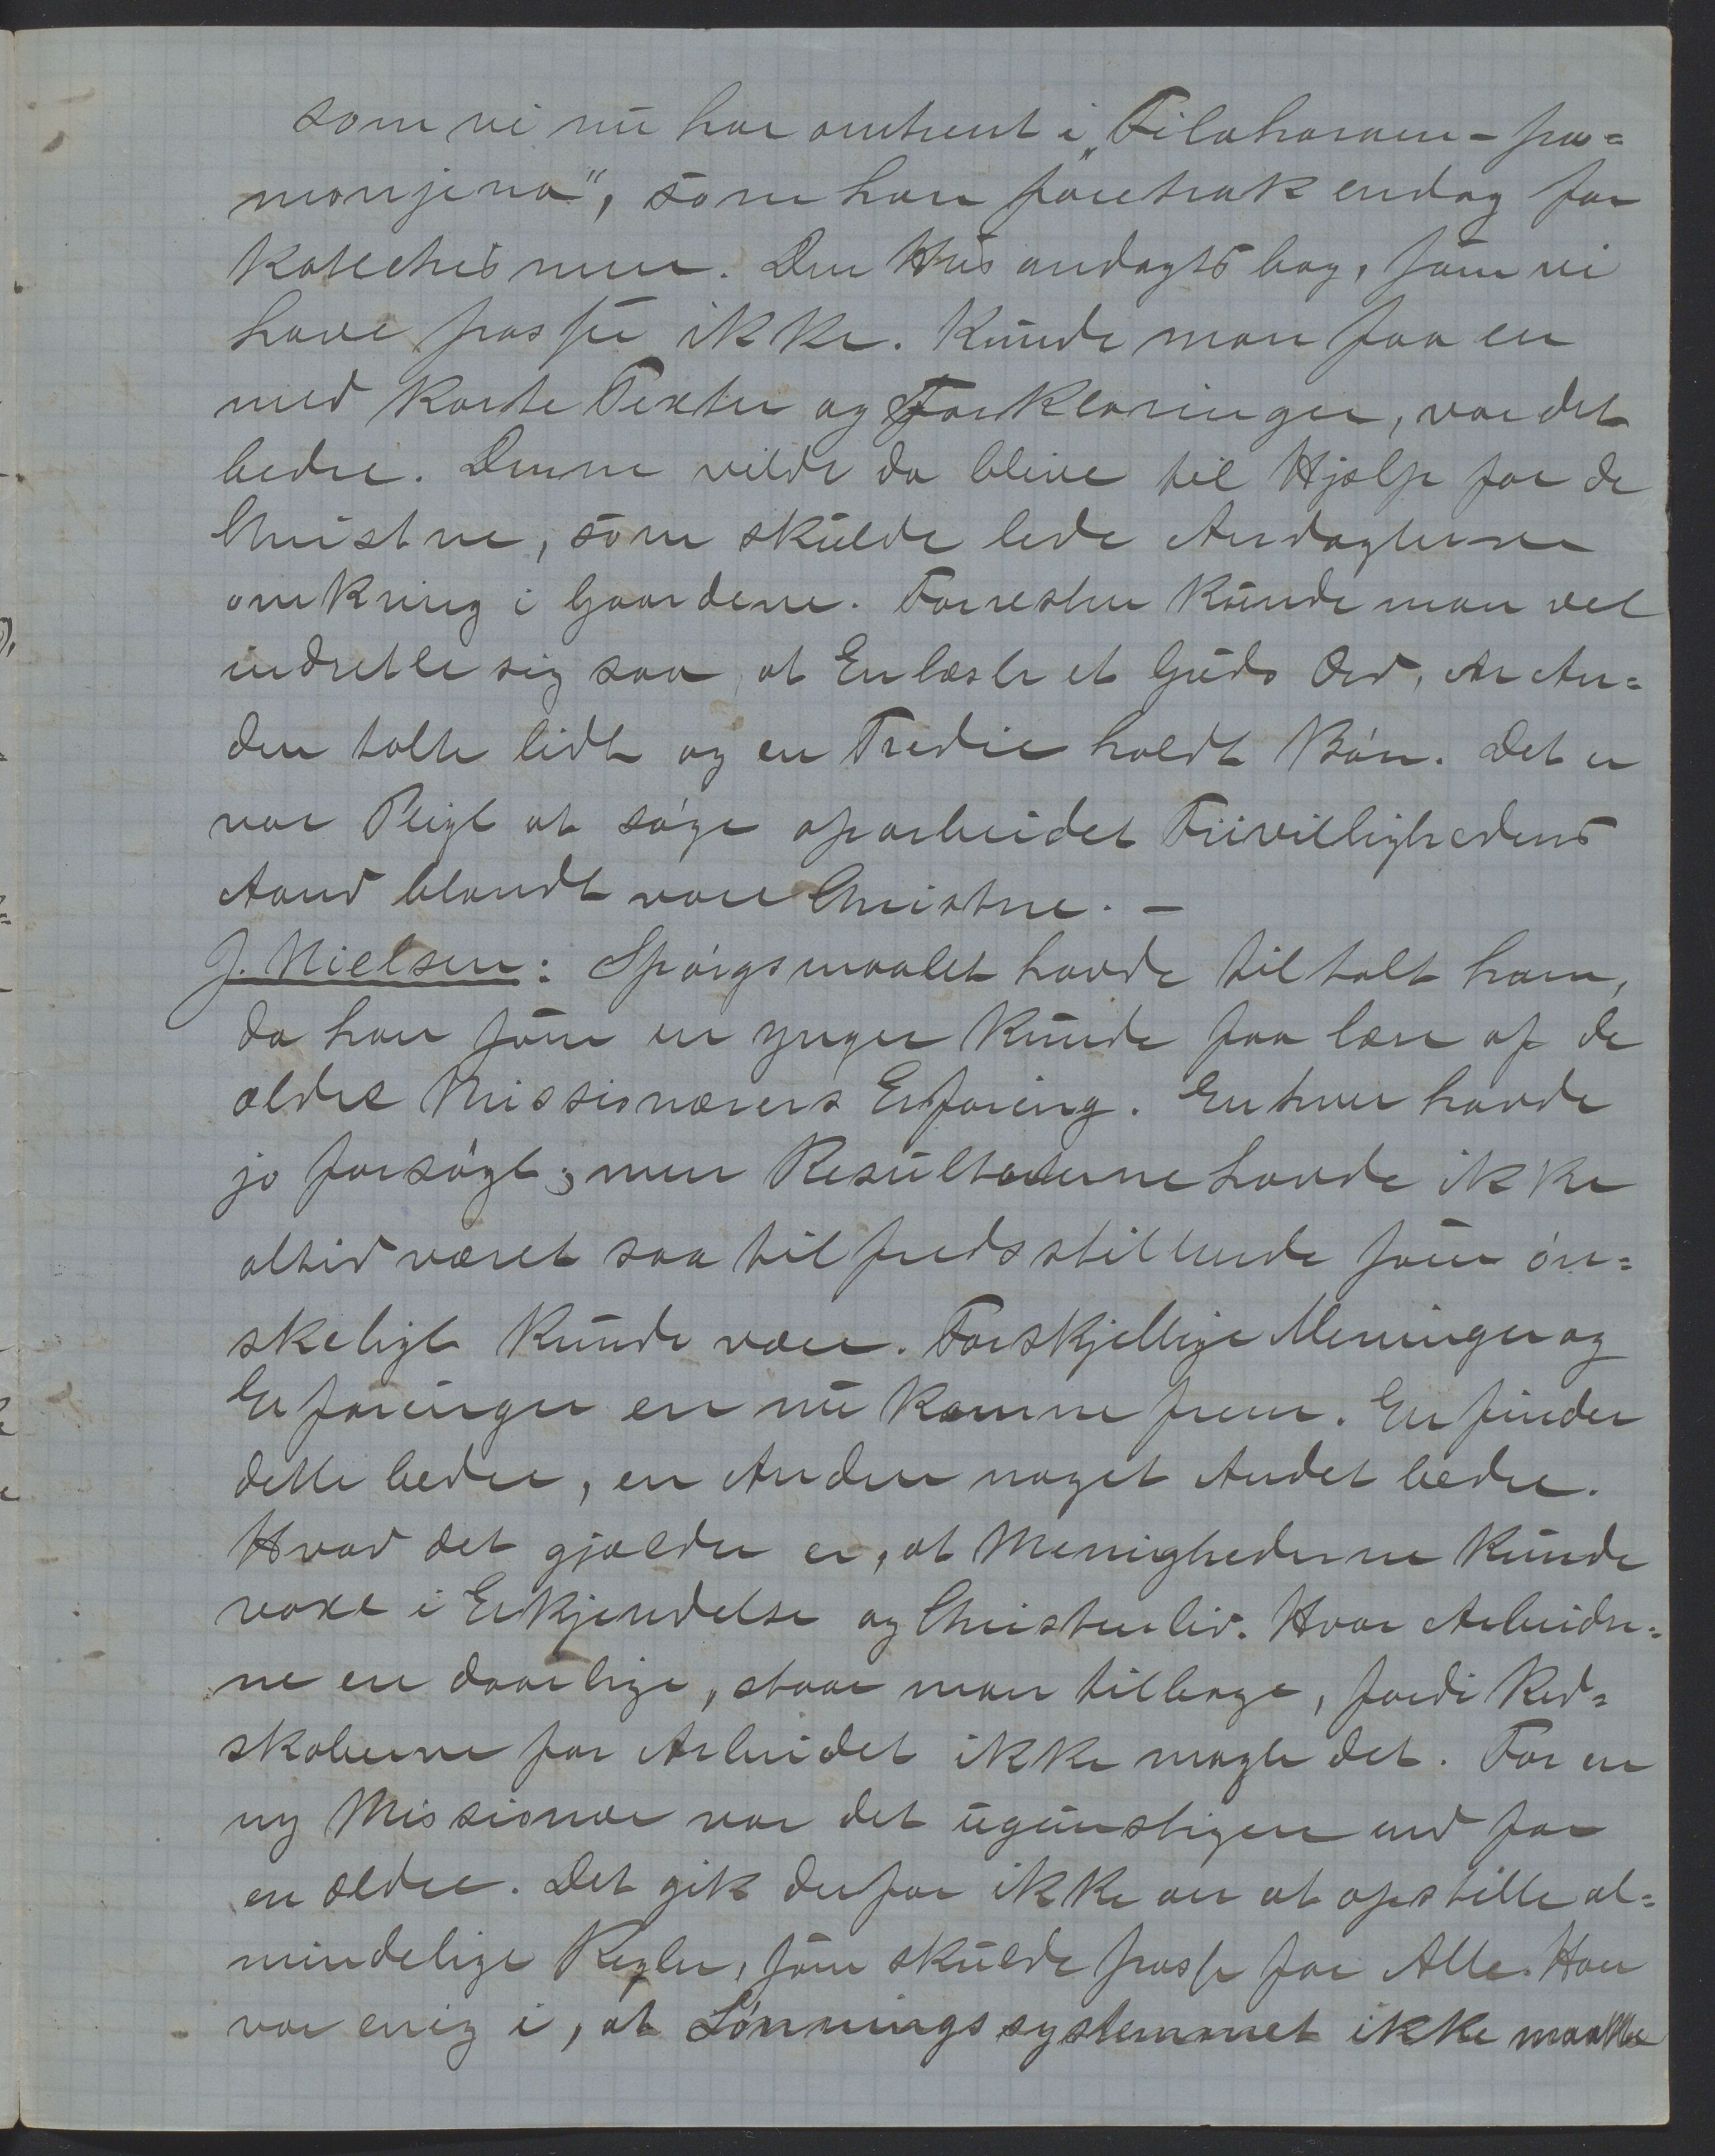 som vi nu har omtrent i „Filaharam-pa=
monjena", som han foretrak endog for
Katechismen. Den Husandagtsbog, som vi
have passer ikke. Kunde man faa en
med korte Texter og Forklaringer, var det
bedre. Denne vilde da blive til Hjælp for de
Christne, som skulde lede Andagterne
omkring i Gaardene. Forresten kunde man vel
indrette sig saa, at En læste et Guds Ord, en An=
den talte lidt og en Tredie holdt Bön. Det er
vor Pligt at söge oparbeidet Frivillighedens
Aand blandt vore Christne. —
J. Nielsen: Spörgsmaalet havde tiltalt ham,
da han som en yngre kunde faa lære af de
ældre Missionærers Erfaring. Enhver havde
jo forsögt; men Resultaterne havde ikke
altid været saa tilfredsstillende som ön=
skeligt kunde være. Forskjellige Meninger og
Erfaringer ere nu komne frem. En finder
dette bedre, en Anden noget Andet bedre.
Hvad det gjælder er, at Menighederne kunde
voxe i Erkjendelse og Christenliv. Hvor Arbeider=
ne ere daarlige, staar man tilbage, fordi Red=
skaberne for Arbeidet ikke magte det. For en
ny Missionær var det ugunstigere end for
en ældre. Det gik derfor ikke an at opstille al=
mindelige Regler, som skulde passe for Alle. Han
var enig i, at Lönningssystemmet ikke maatte